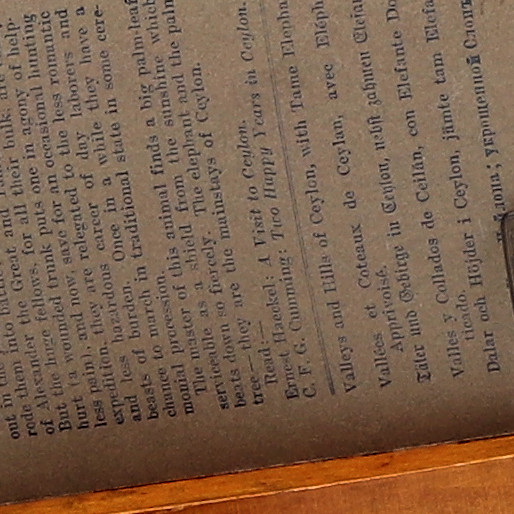 out in the
rode them
of Alexander the Great and
But the huge fellows, for all their bulk, are
hurt (a wounded trunk puts one in agony of help-
less pain), and now, save for an occasional hunting
expedition, they are relegated to the less romantic
and less hazardous career of day laborers and
beasts of burden. Once in a while they have a
chance to march in traditional state in some cere-
monial procession.
The master of this animal finds a big palm-leaf
serviceable as a shield from the sunshine which
beats down so fiercely. The elephant and the palm
tree—they are the mainstays of Ceylon.
Read:—
Ernest Haeckel: A Visit to Ceylon.
C. F. G. Cumming: Two Happy Years in Ceylon.
Valleys and Hills of Ceylon, with Tame
Vallées et Coteaux de Ceylan, avec
Apprivoisé.
Täler und Gebirge in Ceylon, nebst zahmen
Valles y Collados de Ceilán, con Elefante
Dalar och Höjder i Ceylon, jämte tam